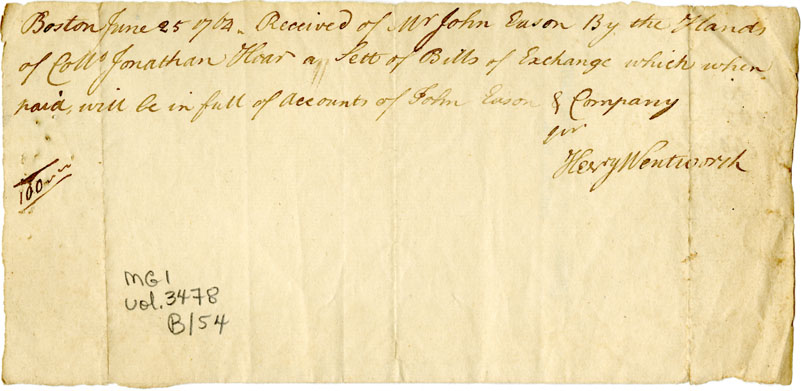 Boston June 25 1762. Received of Mr John Eason By the Hands
of Collo Jonathan Hoar a Sett of Bills of Exchange which when
paid, will be in full of Accounts of John Eason & Company
pr
Henry Wentworth
MG1
vol. 3478
B/54